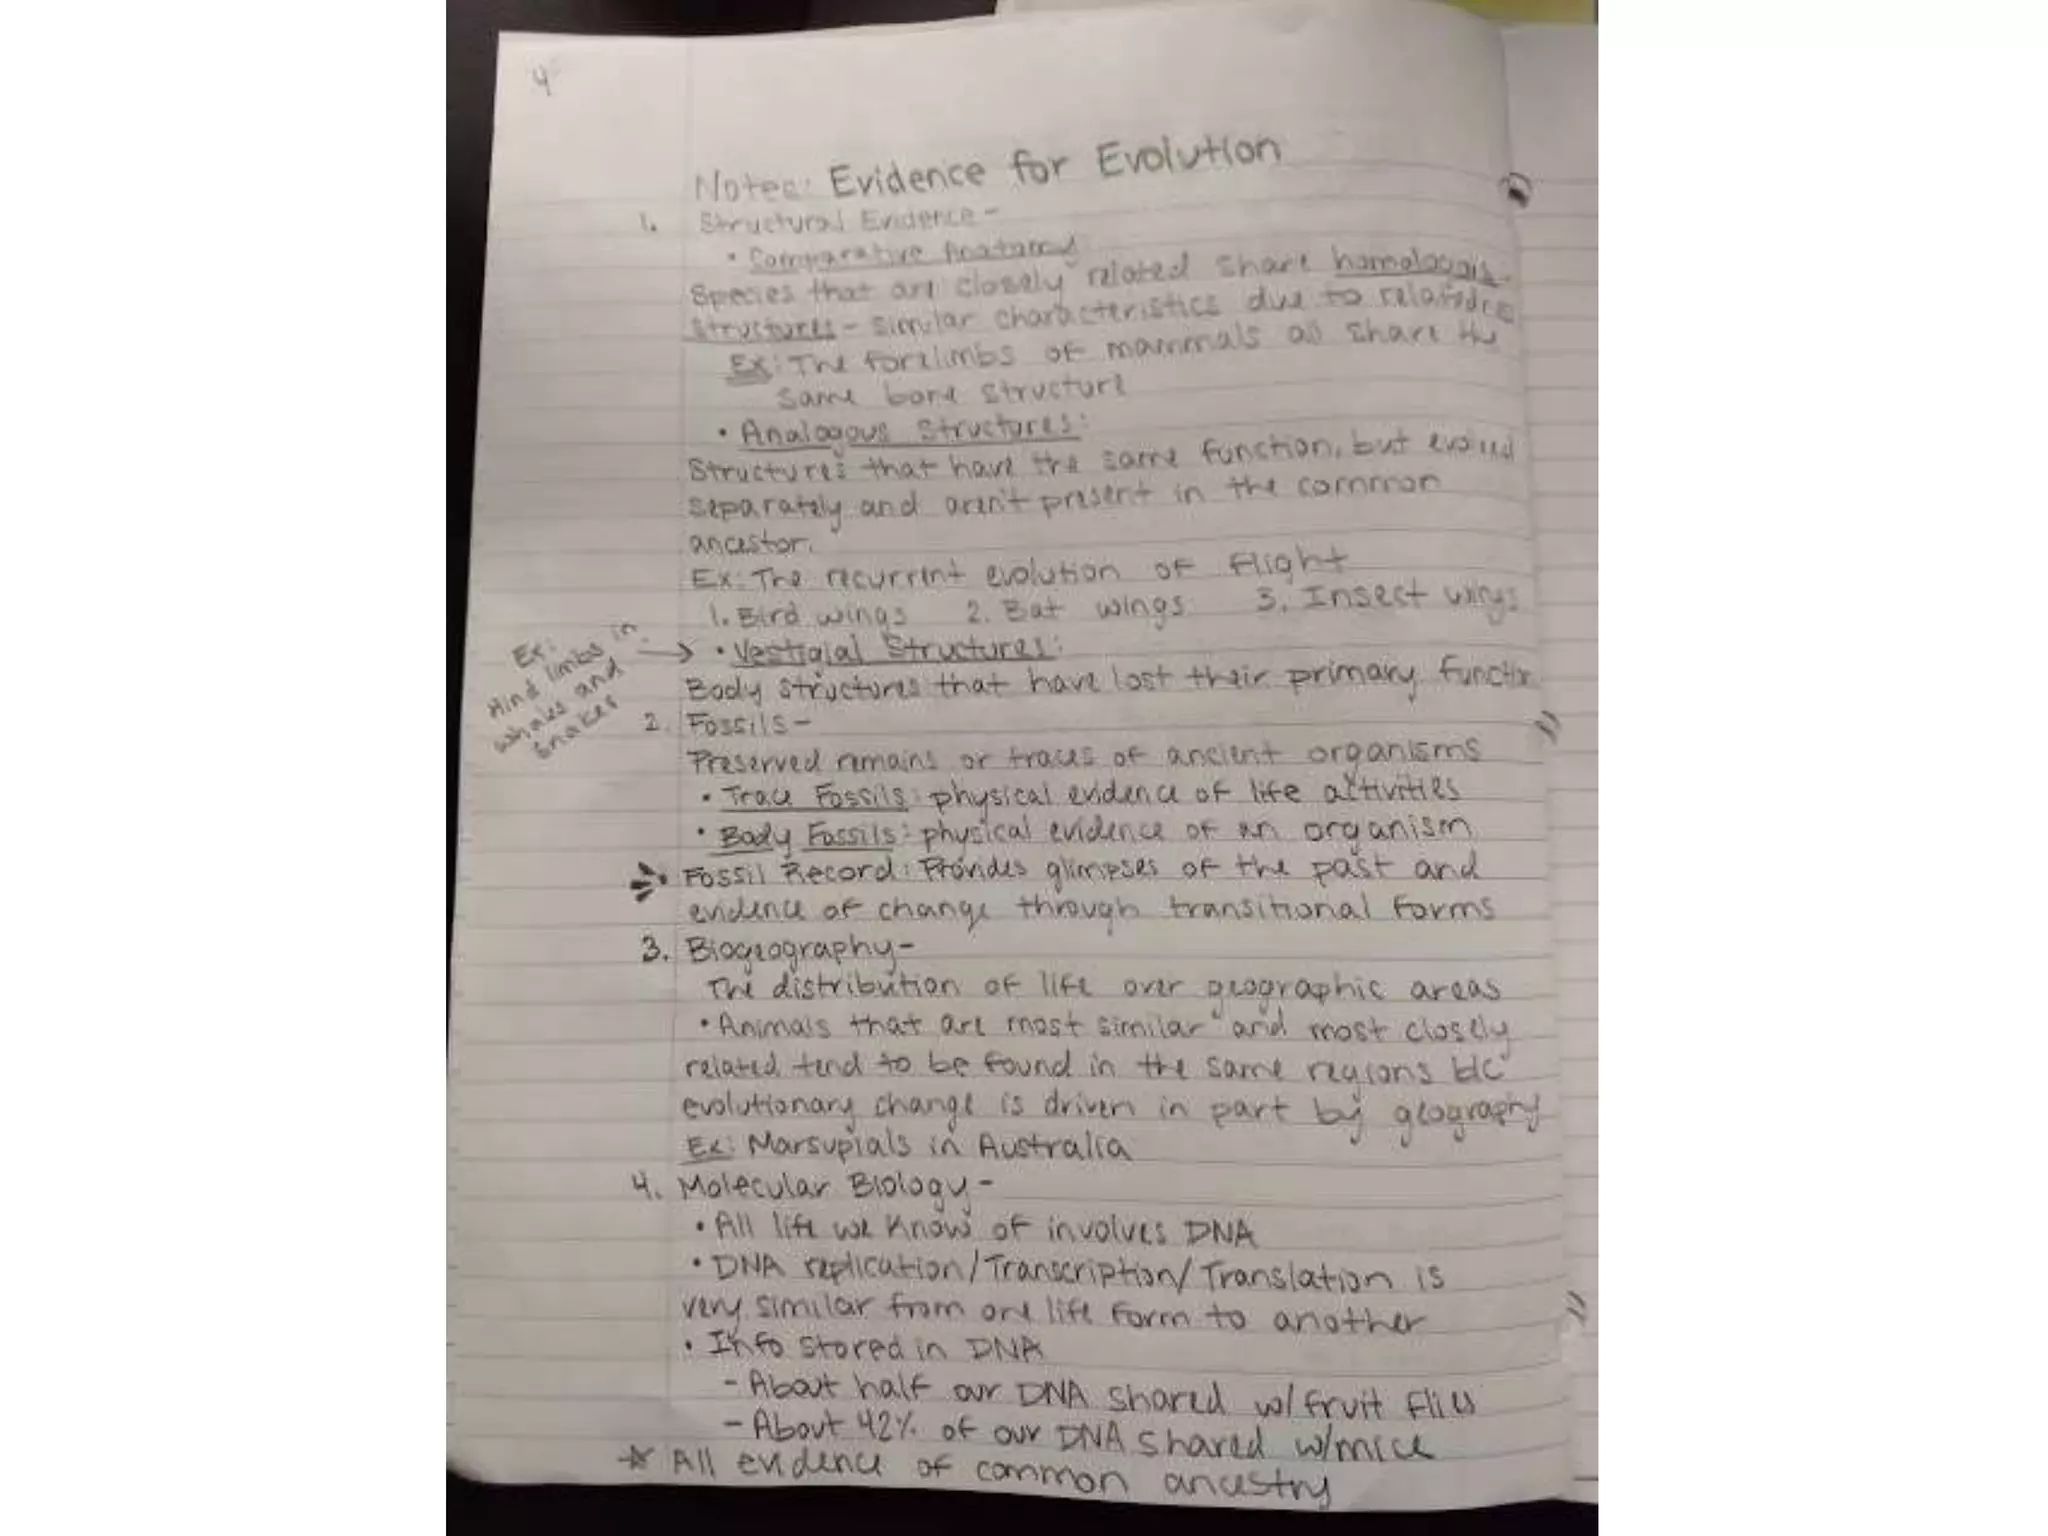 4
Notes: Evidence for Evolution
1. Structural Evidence -
• Comparative Anatomy
Species that are closely related share homologous
structures - similar characteristics due to relatedness
Ex: The forelimbs of mammals all share the
same bone structure
• Analogous Structures:
Structures that have the same function, but evolved
separately and aren't present in the common
ancestor.
Ex: The recurrent evolution of flight
1. Bird wings 2. Bat wings 3. Insect wings
Ex:
Hind limbs in
whales and
snakes
→ • Vestigial Structures:
Body structures that have lost their primary function
2. Fossils -
Preserved remains or traces of ancient organisms
• Trace Fossils: physical evidence of life activities
• Body Fossils: physical evidence of an organism
• Fossil Record: Provides glimpses of the past and
evidence of change through transitional forms
3. Biogeography -
The distribution of life over geographic areas
• Animals that are most similar and most closely
related tend to be found in the same regions b/c
evolutionary change is driven in part by geography
Ex: Marsupials in Australia
4. Molecular Biology -
• All life we know of involves DNA
• DNA replication/Transcription/Translation is
very similar from one life form to another
• Info stored in DNA
- About half our DNA shared w/ fruit flies
- About 42% of our DNA shared w/mice
☆ All evidence of common ancestry